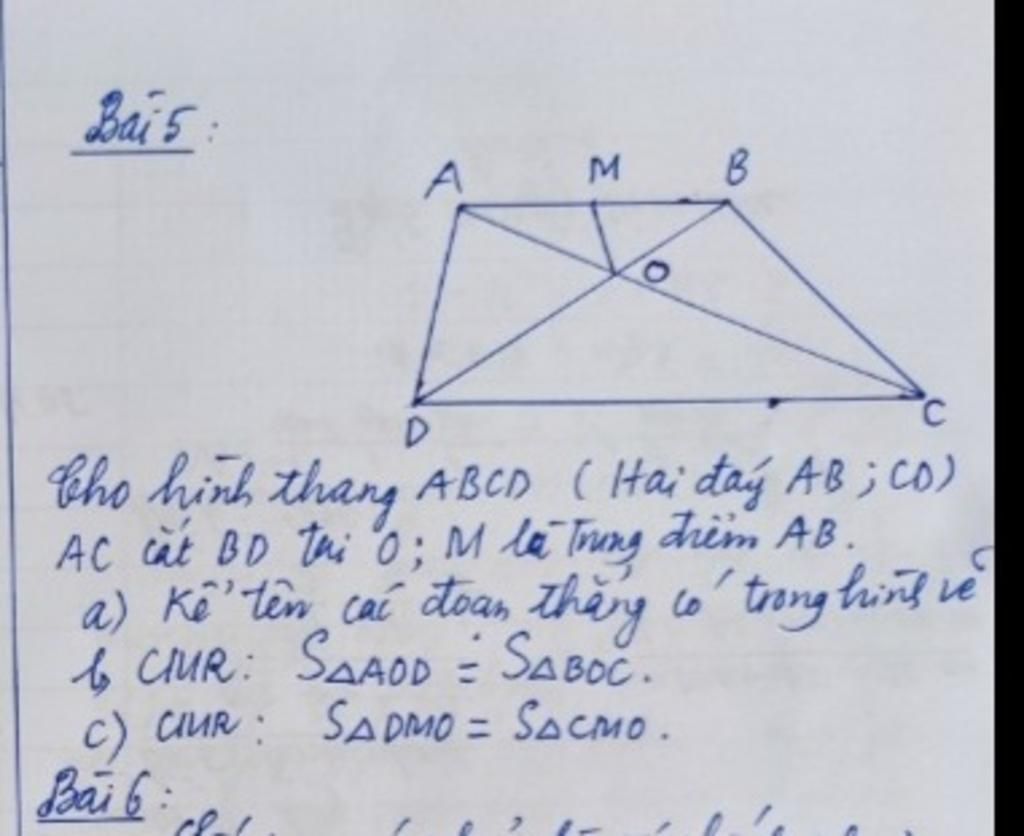 Bài 5 :
A M B
O
D C
Cho hình thang ABCD ( Hai đáy AB ; CD )
AC cắt BD tại O ; M là trung điểm AB .
a) Kể tên các đoạn thẳng có trong hình vẽ
b, CMR : S△AOD = S△BOC .
c) CMR : S△DMO = S△CMO .
Bài 6 :